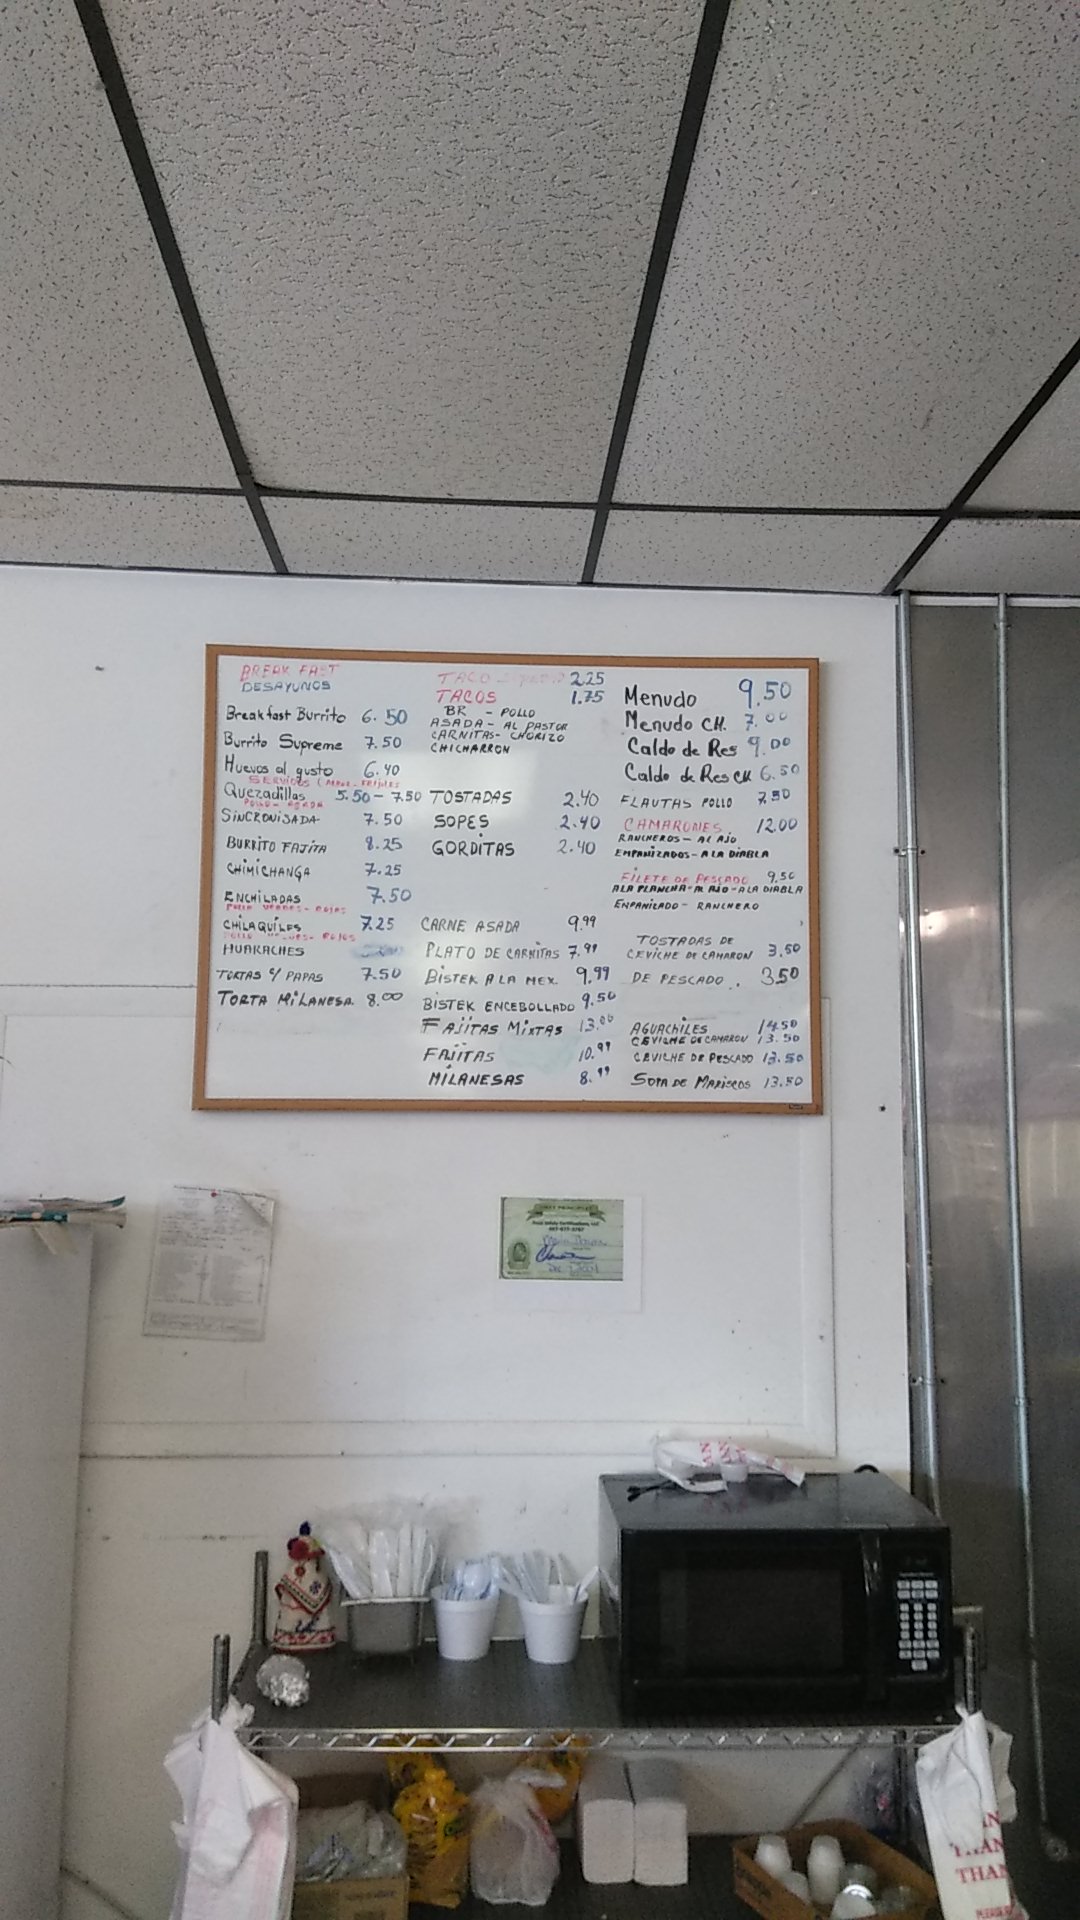 BREAK FAST
DESAYUNOS
Breakfast Burrito 6.50
Burrito Supreme 7.50
Huevos al gusto 6.40
SERVIDOS
Quezadillas 5.50 - 7.50
POLLO - ASADA
SINCRONISADA 7.50
BURRITO FAJITA 8.25
CHIMICHANGA 7.25
ENCHILADAS 7.50
POLLO VERDES - ROJAS
CHILAQUILES 7.25
ROJOS
HUARACHES
TORTAS Y PAPAS 7.50
TORTA MILANESA 8.00
TACO 2.25
TACOS 1.75
BR - POLLO
ASADA - AL PASTOR
CARNITAS - CHORIZO
CHICHARRON
TOSTADAS 2.40
SOPES 2.40
GORDITAS 2.40
CARNE ASADA 9.99
PLATO DE CARNITAS 7.99
BISTEK A LA MEX. 9.99
BISTEK ENCEBOLLADO 9.50
FAJITAS MIXTAS 13.00
FAJITAS 10.99
MILANESAS 8.99
Menudo 9.50
Menudo CH. 7.00
Caldo de Res 9.00
Caldo de Res CH 6.50
FLAUTAS POLLO 7.50
CAMARONES. 12.00
RANCHEROS - AL AJO
EMPANIZADOS - A LA DIABLA
FILETE DE PESCADO 9.50
A LA PLANCHA - AL AJO - A LA DIABLA
EMPANIZADO - RANCHERO
TOSTADAS DE
CEVICHE DE CAMARON 3.50
DE PESCADO. 3.50
AGUACHILES 14.50
CEVICHE DE CAMARON 13.50
CEVICHE DE PESCADO 13.50
SOPA DE MARISCOS 13.50
Food Safety Certifications, LLC
THAN
THAN